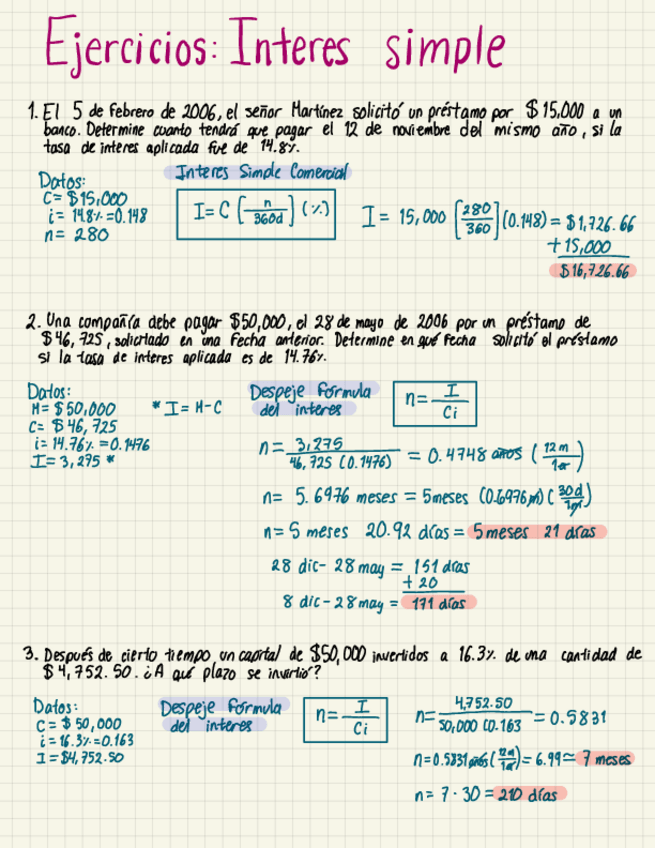 Ejercicios: Interes simple
1. El 5 de febrero de 2006, el señor Martínez solicitó un préstamo por $15,000 a un
banco. Determine cuanto tendrá que pagar el 12 de noviembre del mismo año, si la
tasa de interes aplicada fue de 14.8%.
Datos:
C= $15,000
i= 14.8% =0.148
n= 280
Interes Simple Comercial
I= C [n/360d] (%)
I= 15,000 [280/360] (0.148) = $1,726.66
+15,000
$16,726.66
2. Una compañía debe pagar $50,000, el 28 de mayo de 2006 por un préstamo de
$46,725, solicitado en una fecha anterior. Determine en qué fecha solicitó el préstamo
si la tasa de interes aplicada es de 14.76%.
Datos:
M= $50,000
C= $46,725
i= 14.76% =0.1476
I= 3,275 *
* I= M-C
Despeje fórmula
del interes
n= I/Ci
n= 3,275/46,725 (0.1476) = 0.4748 años (12m/1a)
n= 5.6976 meses = 5meses (0.6976m)(30d/1m)
n= 5 meses 20.92 días = 5 meses 21 días
28 dic- 28 may = 151 días
+ 20
8 dic-28 may= 171 días
3. Después de cierto tiempo un capital de $50,000 invertidos a 16.3% de una cantidad de
$4,752.50. ¿A qué plazo se invirtió?
Datos:
C= $50,000
i= 16.3% =0.163
I= $4,752.50
Despeje fórmula
del interes
n= I/Ci
n= 4,752.50/50,000 (0.163 = 0.5831
n= 0.5831 años (12m/1a) = 6.99 ≈ 7 meses
n= 7 · 30 = 210 días